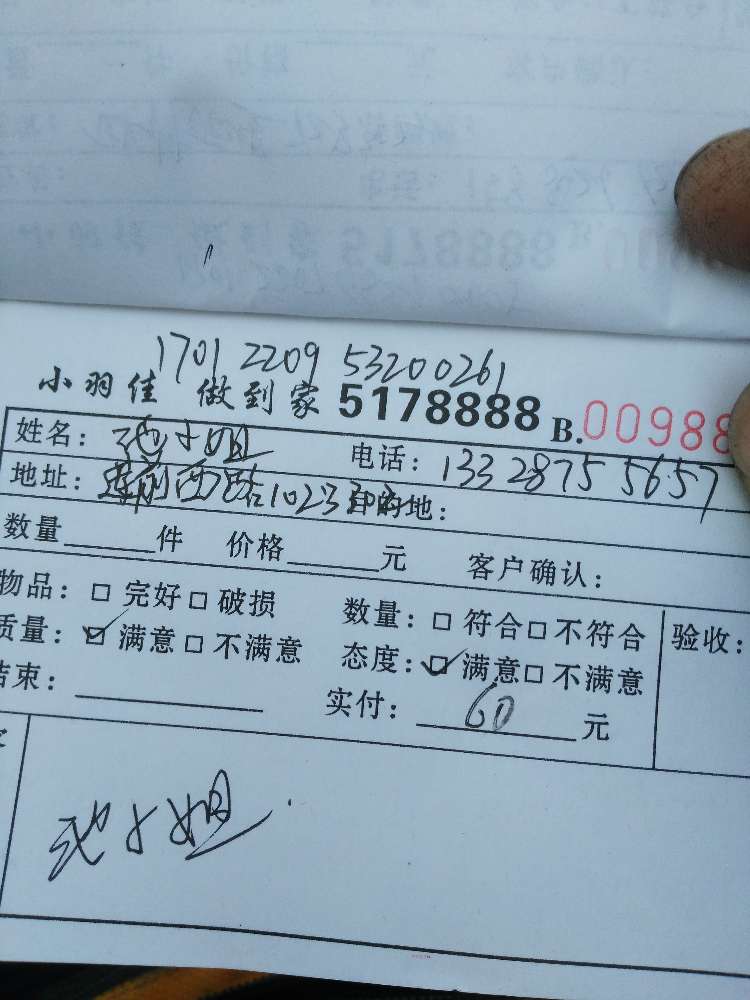 1701 2209 53200261
小羽佳 做到家 5178888 B.00988
姓名：池小姐 电话：133 2875 5657
地址：莲前西路1023 目的地：
数量 件 价格 元 客户确认：
物品：□ 完好 □ 破损 数量：□ 符合 □ 不符合 验收：
质量：☑ 满意 □ 不满意 态度：☑ 满意 □ 不满意
结束： 实付：60 元
池小姐